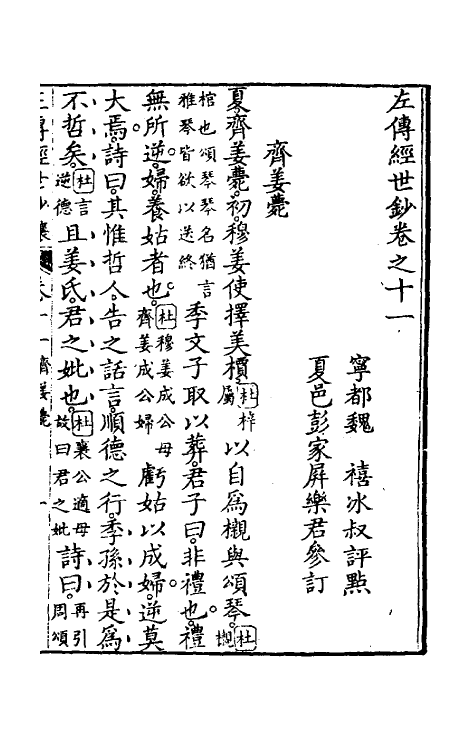 左傳經世鈔卷之十一
寧都魏　禧冰叔評點
夏邑彭家屏樂君參訂
齊姜薨
夏齊姜薨。初穆姜使擇美檟杜梓屬以自爲櫬與頌琴。杜櫬
棺也頌琴琴名猶言雅琴皆欲以送終季文子取以葬。君子曰。非禮也。禮
無所逆。婦養姑者也。杜穆姜成公母齊姜成公婦虧姑以成婦。逆莫
大焉。詩曰。其惟哲人。告之話言。順德之行。季孫於是爲
不哲矣。杜言逆德且姜氏。君之妣也。杜襄公適母故曰君之妣詩曰。再引周頌
左傳經世鈔襄　卷十一齊姜薨　一